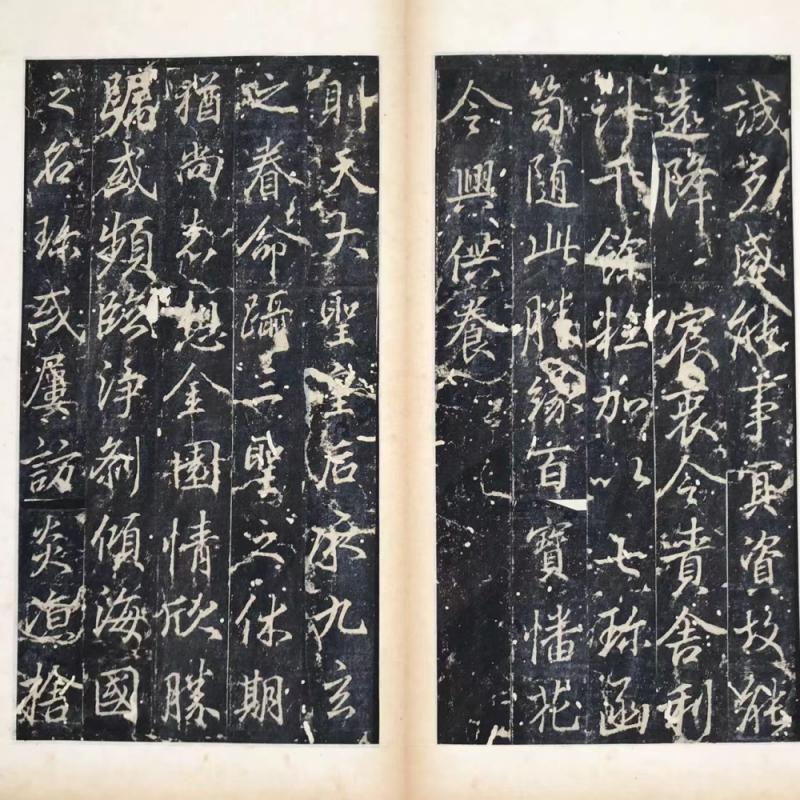 誠多感能事冥資故能
遠降 宸衷令賚舍利
計千餘粒加以七珍函
笥随此勝緣百寶幡花
令興供養
則天大聖皇后承九玄
之眷命躡三聖之休期
猶尚志想金園情欣勝
躅或頻臨淨刹傾海國
之名珍或屢訪炎凉捨